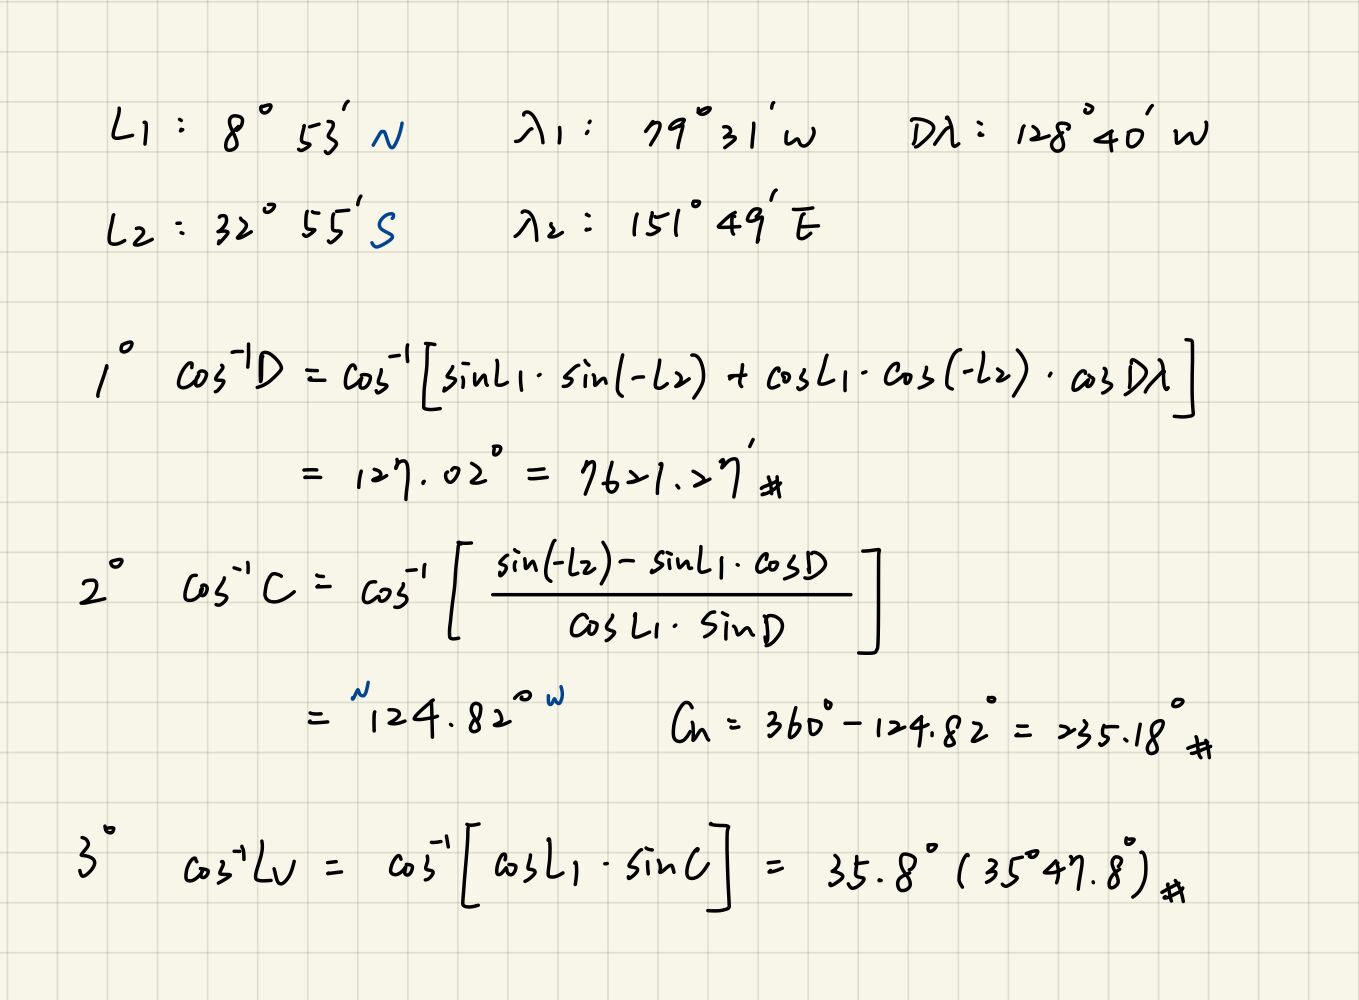 L1 : 8° 53′ N λ1 : 79° 31′ W Dλ : 128° 40′ W
L2 : 32° 55′ S λ2 : 151° 49′ E
1° cos⁻¹D = cos⁻¹[sinL1 · sin(-L2) + cosL1 · cos(-L2) · cosDλ]
= 127.02° = 7621.27′ #
2° cos⁻¹C = cos⁻¹[(sin(-L2) - sinL1 · cosD) / (cosL1 · sinD)]
= N 124.82° W Cn = 360° - 124.82° = 235.18° #
3° cos⁻¹Lv = cos⁻¹[cosL1 · sinC] = 35.8° (35° 47.8°) #